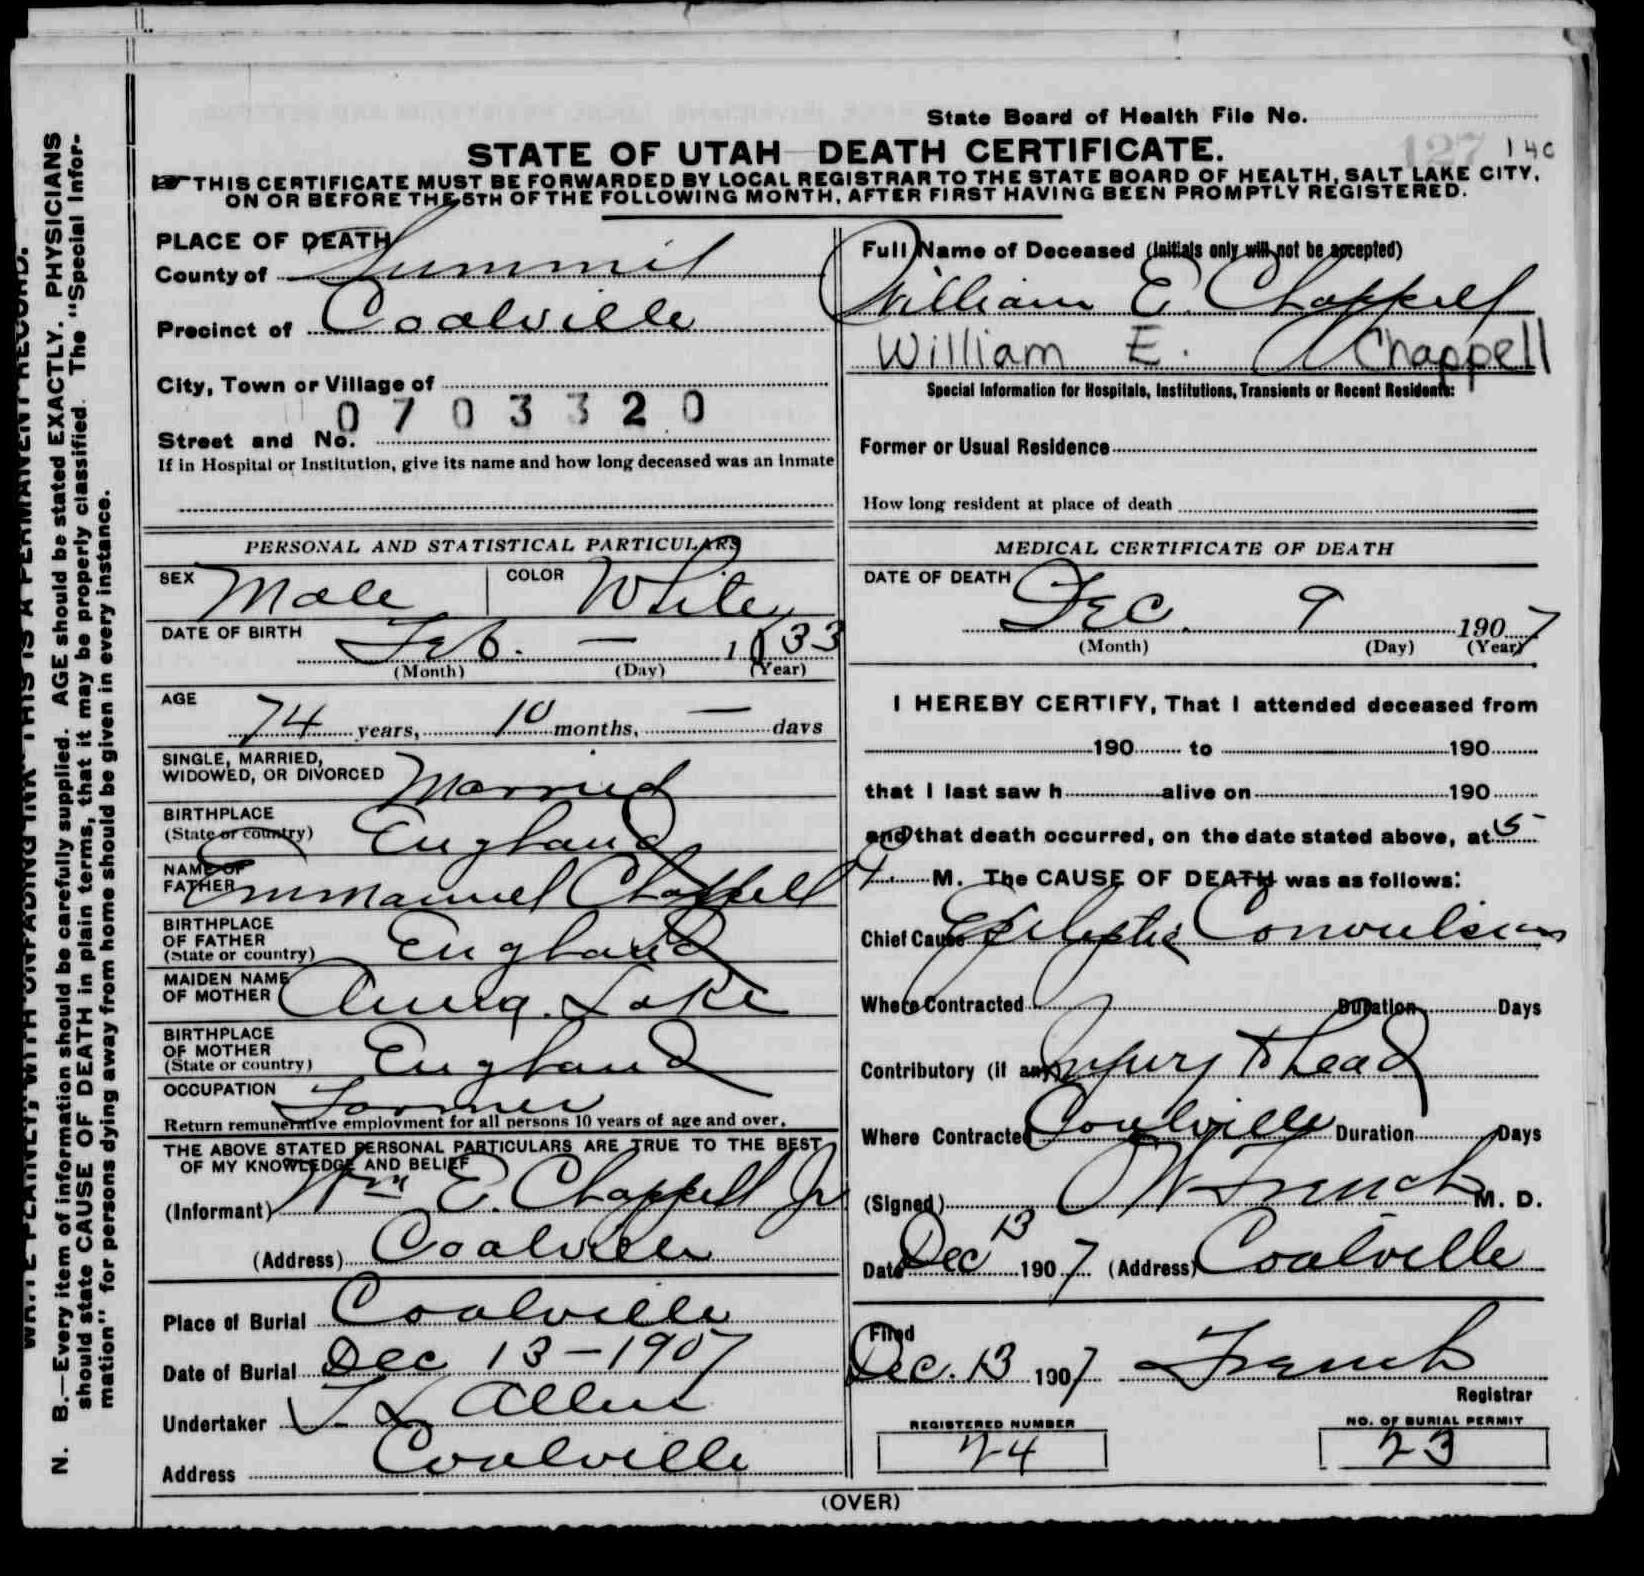 State Board of Health File No.
127 140
STATE OF UTAH DEATH CERTIFICATE.
THIS CERTIFICATE MUST BE FORWARDED BY LOCAL REGISTRAR TO THE STATE BOARD OF HEALTH, SALT LAKE CITY,
ON OR BEFORE THE 5TH OF THE FOLLOWING MONTH, AFTER FIRST HAVING BEEN PROMPTLY REGISTERED.
PLACE OF DEATH
County of Summit
Precinct of Coalville
City, Town or Village of
0703320
Street and No.
If in Hospital or Institution, give its name and how long deceased was an inmate
Full Name of Deceased (Initials only will not be accepted)
William E. Chappell
William E. Chappell
Special Information for Hospitals, Institutions, Transients or Recent Residents:
Former or Usual Residence
How long resident at place of death
PERSONAL AND STATISTICAL PARTICULARS
SEX Male COLOR White
DATE OF BIRTH Feb. — 1833
(Month) (Day) (Year)
AGE
74 years, 10 months, — days
SINGLE, MARRIED,
WIDOWED, OR DIVORCED Married
BIRTHPLACE
(State or country) England
NAME OF
FATHER Emmanuel Chappell
BIRTHPLACE
OF FATHER
(State or country) England
MAIDEN NAME
OF MOTHER Lake
BIRTHPLACE
OF MOTHER
(State or country) England
OCCUPATION Farmer
Return remunerative employment for all persons 10 years of age and over.
THE ABOVE STATED PERSONAL PARTICULARS ARE TRUE TO THE BEST
OF MY KNOWLEDGE AND BELIEF
(Informant) Wm E. Chappell Jr
(Address) Coalville
Place of Burial Coalville
Date of Burial Dec 13-1907
Undertaker Allen
Address Coalville
MEDICAL CERTIFICATE OF DEATH
DATE OF DEATH Dec. 9 1907
(Month) (Day) (Year)
I HEREBY CERTIFY, That I attended deceased from
190 to 190
that I last saw h alive on 190
and that death occurred, on the date stated above, at 5
M. The CAUSE OF DEATH was as follows:
Chief Cause Epileptic Convulsions
Where Contracted Duration Days
Contributory (if any) Injury to head
Where Contracted Coalville Duration Days
(Signed) French M. D.
Date Dec 13 1907 (Address) Coalville
Filed
Dec. 13 1907 French
Registrar
REGISTERED NUMBER
24
NO. OF BURIAL PERMIT
23
(OVER)
WRITE PLAINLY, WITH UNFADING INK—THIS IS A PERMANENT RECORD.
N. B.—Every item of information should be carefully supplied. AGE should be stated EXACTLY. PHYSICIANS
should state CAUSE OF DEATH in plain terms, that it may be properly classified. The "Special Infor-
mation" for persons dying away from home should be given in every instance.